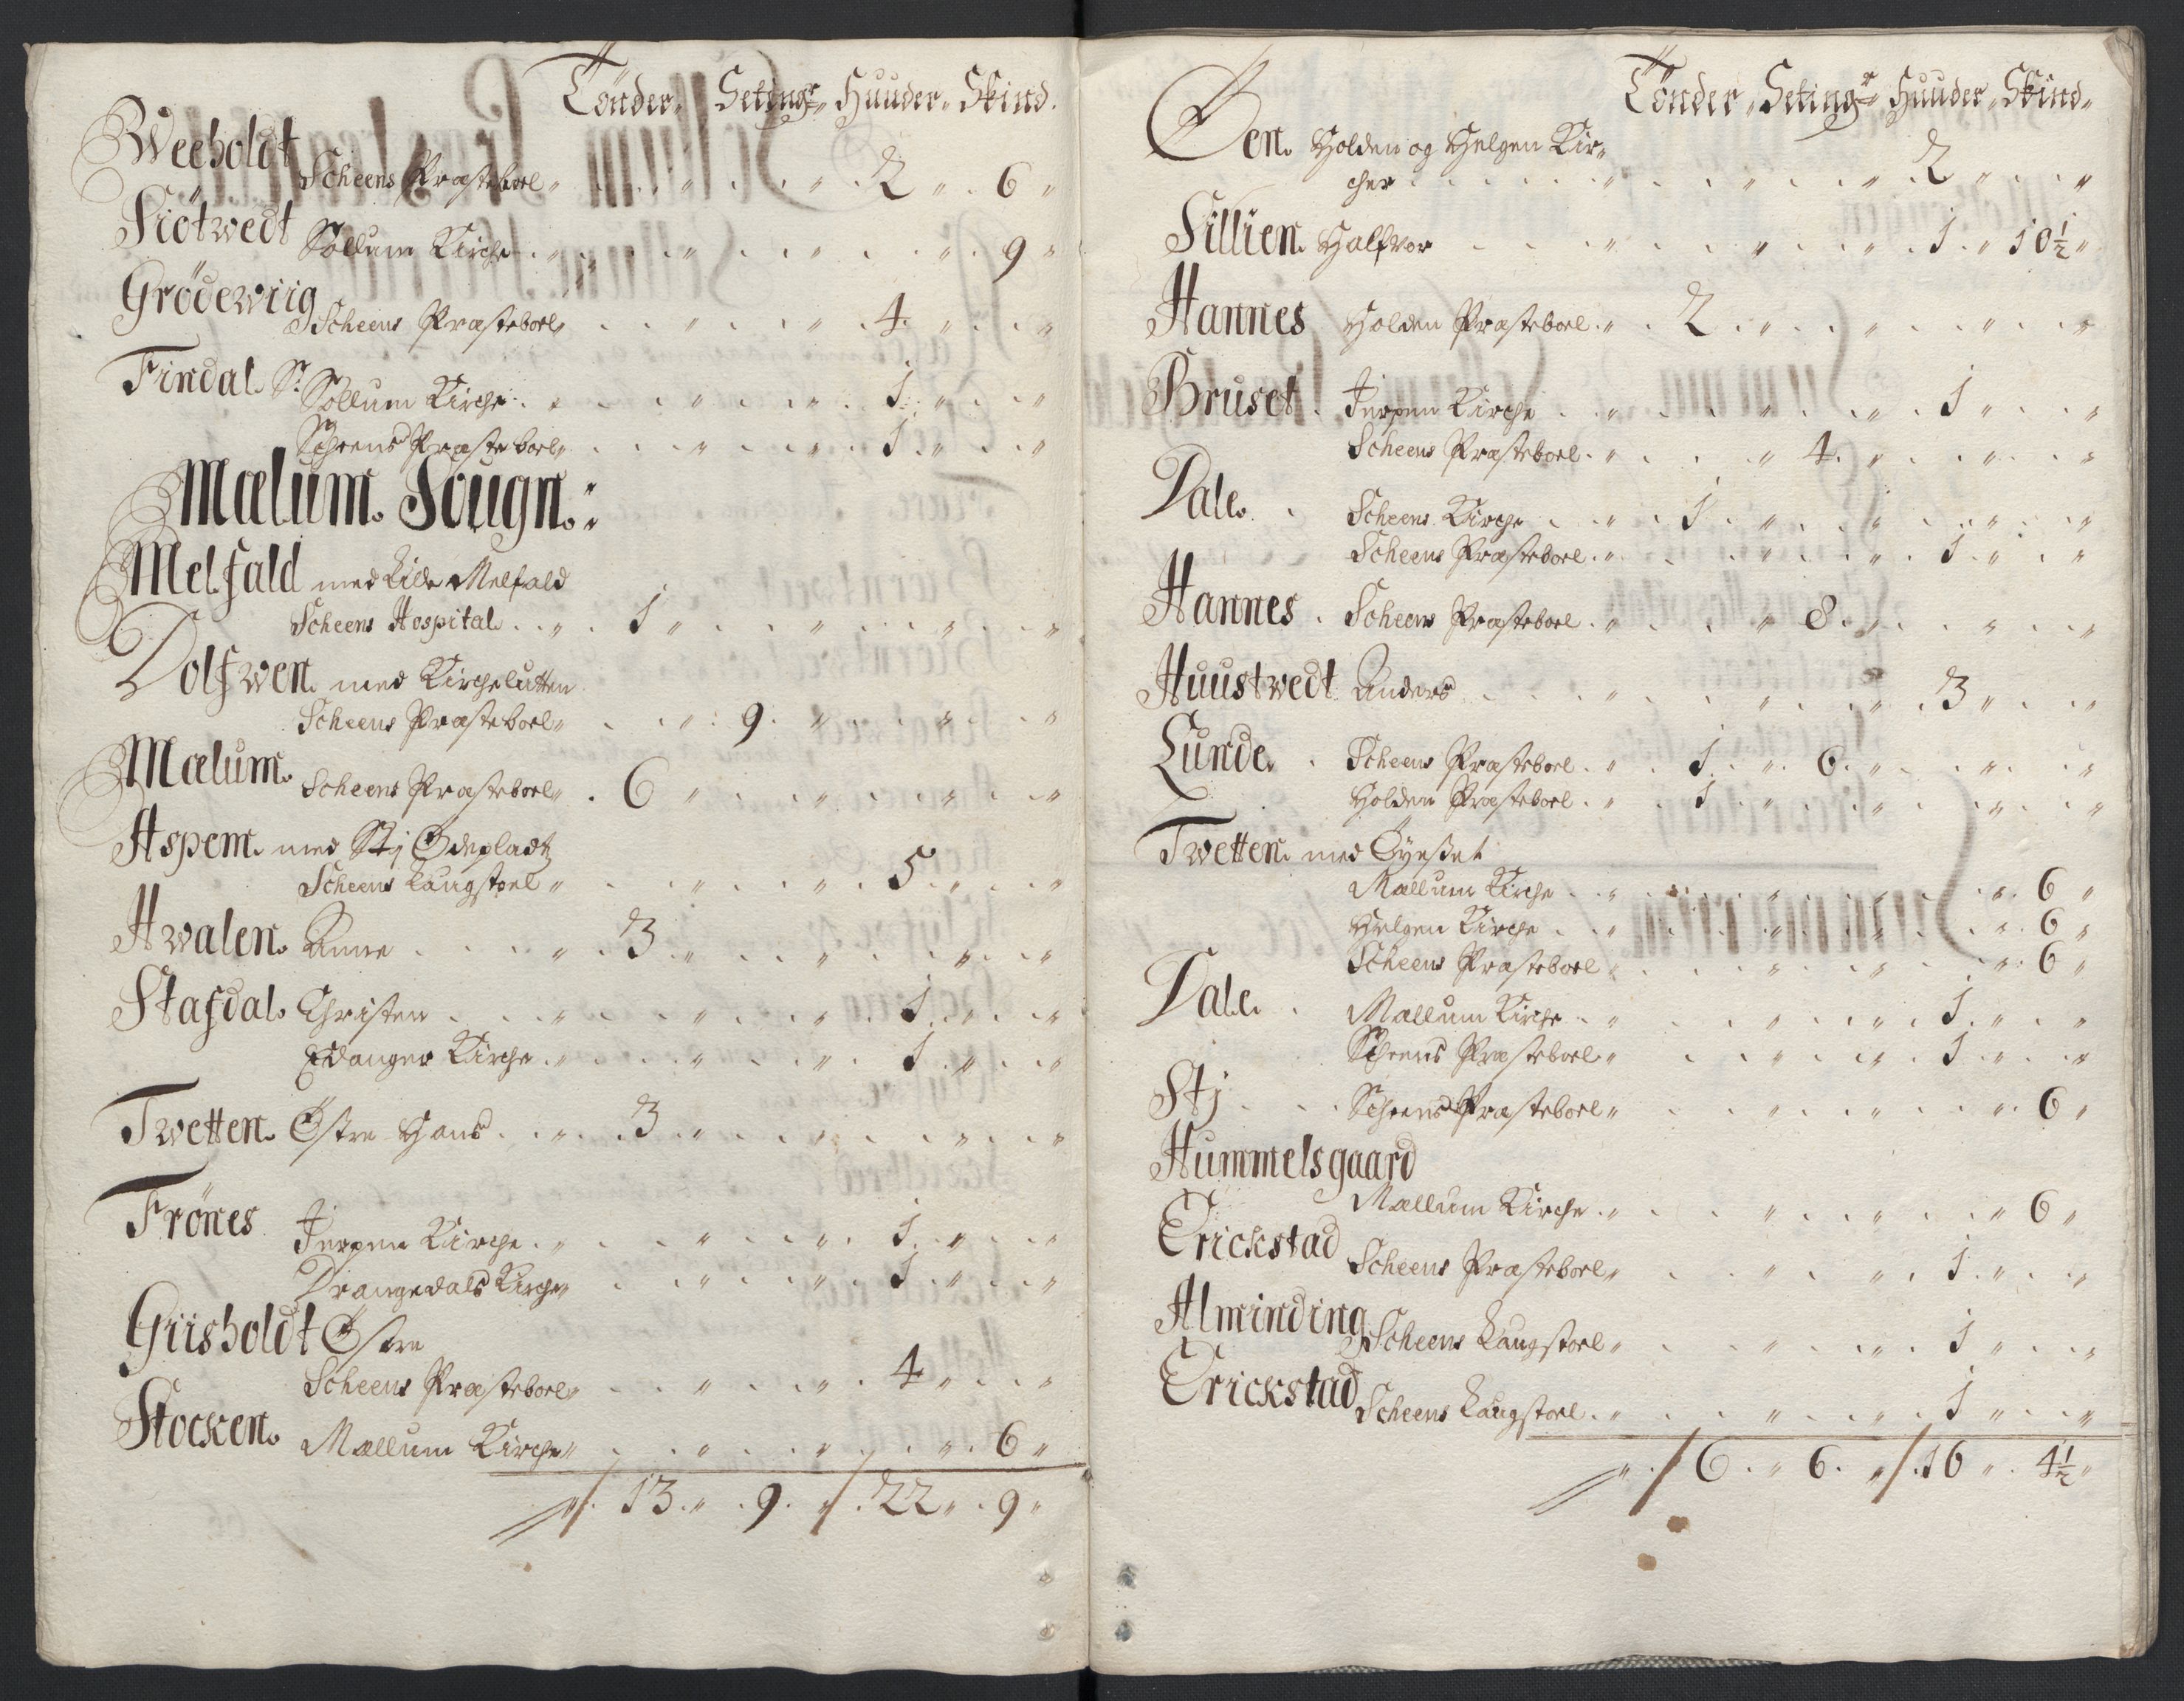 Tönder, Setingr Huuder, Skind.
Weeholdt
Scheens Præsteboel 2 6
Siötwedt Sollum Kirche 9
Grödewiig
Scheens Præsteboel 4
Findal Sr Sollum Kirche 1
Scheens Præsteboel 1
Mælum Sougn:
Melfald med Lille Melfald
Scheens Hospital 1
Dolfwen med Kirchelutten
Scheens Præsteboel 9
Mælum
Scheens Præsteboel 6
Aspem med Stj Ödepladtz
Scheens Laugstoel 5
Hwalen Anne 3
Stafdal Christen 1
Eidanger Kirche 1
Twetten Östre Hans 3
Frönes Jerpen Kirche 1
Drangedals Kirche 1
Griisholdt Östre
Scheens Præsteboel 4
Stocken Mællum Kirche 6
13 9 22 9
Tönder, Setingr Huuder, Skind
Øen Holden og Helgen Kir-
cher 2
Sillien Halfvor 1 10½
Hannes Holden Præsteboel 2
Bruset Jerpen Kirche 1
Scheens Præsteboel 4
Dale Scheens Kirche 1
Scheens Præsteboel 1
Hannes Scheens Præsteboel 8
Huustwedt Anders 3
Lunde Scheens Præsteboel 1 6
Holden Præsteboel 1
Twetten med Öyeset
Mællum Kirche 6
Helgen Kirche 6
Scheens Præsteboel 6
Dale Mællum Kirche 1
Scheens Præsteboel 1
Stj Scheens Præsteboel 6
Hummelsgaard
Mællum Kirche 6
Erickstad
Scheens Præsteboel 1
Alminding
Scheens Laugstoel 1
Erickstad
Scheens Laugstoel 1
6 6 16 4½